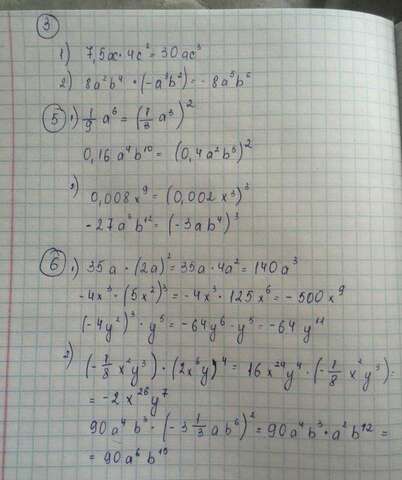 ③
1) 7,5a·4c² = 30ac³
2) 8a²b⁴ · (-a³b²) = -8a⁵b⁶
⑤ 1) 1/9 a⁶ = (1/3 a³)²
0,16a⁴b¹⁰ = (0,4a²b⁵)²
2) 0,008x⁹ = (0,002x³)³
-27a³b¹² = (-3ab⁴)³
⑥ 1) 35a · (2a)² = 35a · 4a² = 140a³
-4x³ · (5x²)³ = -4x³ · 125x⁶ = -500x⁹
(-4y²)³ · y⁵ = -64y⁶ · y⁵ = -64y¹¹
2) (-1/8 x²y³) · (2x⁶y)⁴ = 16x²⁴y⁴ · (-1/8 x²y³) =
= -2x²⁶y⁷
90a⁴b³ · (-3 1/3 ab⁶)² = 90a⁴b³ · a²b¹² =
= 90a⁶b¹⁵